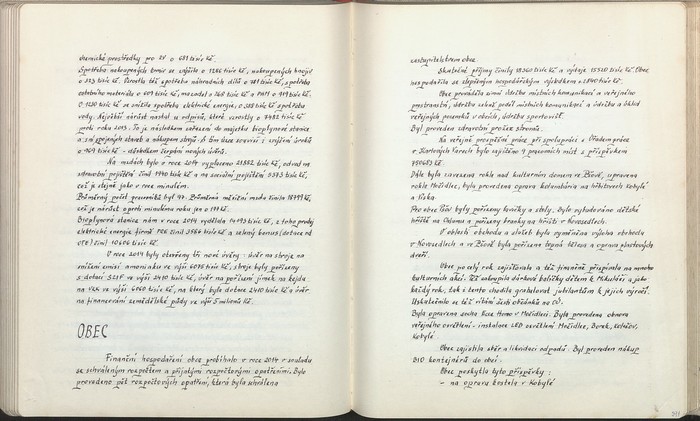 chemické prostředky pro RV o 681 tisíc Kč.
Spotřeba nakoupených krmiv se zvýšila o 1286 tisíc Kč, nakoupených hnojiv
o 323 tisíc Kč. Vzrostla též spotřeba náhradních dílů o 781 tisíc Kč, spotřeba
ostatního materiálu o 607 tisíc Kč, mazadel o 268 tisíc Kč a PHM o 919 tisíc Kč.
O 1230 tisíc Kč se snížila spotřeba elektrické energie, o 308 tisíc Kč spotřeba
vody. Největší nárůst nastal u odpisů, které vzrostly o 7482 tisíc Kč
proti roku 2013. To je následkem zařazení do majetku bioplynové stanice
a s ní spojených staveb a nákupem strojů. S tím úzce souvisí i zvýšení úroků
o 969 tisíc Kč - důsledkem čerpání nových úvěrů.
Na mzdách bylo v roce 2014 vyplaceno 21882 tisíc Kč, odvod na
zdravotní pojištění činil 1970 tisíc Kč a na sociální pojištění 5373 tisíc Kč,
což je stejné jako v roce minulém.
Průměrný počet pracovníků byl 97. Průměrná měsíční mzda činila 18799 Kč,
což je nárůst oproti minulému roku jen o 191 Kč.
Bioplynová stanice nám v roce 2014 vydělala 14193 tisíc Kč, z toho prodej
elektrické energie firmě POE činil 3586 tisíc Kč a zelený bonus (dotace od
OTE) činil 10606 tisíc Kč.
V roce 2014 byly otevřeny tři nové úvěry: úvěr na stroje na
snížení emisí amoniaku ve výši 6075 tisíc Kč, stroje byly pořízeny
s dotací SZIF ve výši 2410 tisíc Kč, úvěr na pořízení jímek na kejdu
na VKK ve výši 6060 tisíc Kč, na který byla dotace 2410 tisíc Kč a úvěr
na financování zemědělské půdy ve výši 5 milionů Kč.
OBEC
Finanční hospodaření obce probíhalo v roce 2014 v souladu
se schváleným rozpočtem a přijatými rozpočtovými opatřeními. Bylo
provedeno pět rozpočtových opatření, která byla schválena
zastupitelstvem obce.
Skutečné příjmy činily 18360 tisíc Kč a výdaje 15520 tisíc Kč. Obec
hospodařila se zlepšeným hospodářským výsledkem + 2840 tisíc Kč.
Obec prováděla zimní údržbu místních komunikací a veřejného
prostranství, údržbu zeleně podél místních komunikací a údržbu a úklid
veřejných pozemků v obcích, údržbu sportovišť.
Byl proveden zdravotní prořez stromů.
Na veřejně prospěšné práce při spolupráci s Úřadem práce
v Karlových Varech bylo zajištěno 9 pracovních míst s příspěvkem
750653 Kč.
Dále byla zavezena rokle nad kulturním domem ve Štědré, upravena
rokle Močidlec, byla provedena oprava kolumbária na hřbitovech Kobylé
a Lažka.
Pro obec Pšov byly pořízeny lavičky a stoly, bylo vybudováno dětské
hřiště na Chlumu a pořízeny branky na hřišti v Novosedlech.
V oblasti obchodu a služeb byla vyměněna výloha obchodu
v Novosedlech a ve Štoutově byla pořízena topná tělesa a oprava plastových
dveří.
Obec po celý rok zajišťovala a též finančně přispívala na mnoho
kulturních akcí. Též zakoupila dárkové balíčky dětem k Mikuláši a jako
každý rok, tak i tento chodila gratulovat jubilantům k jejich výročí.
Uskutečnilo se též vítání šesti občánků na OÚ.
Byla opravena socha Ecce Homo v Močidleci. Byla provedena obnova
veřejného osvětlení - instalace LED osvětlení Močidlec, Borek, Kolešov,
Kobylé.
Obec zajistila sběr a likvidaci odpadů. Byl proveden nákup
BIO kontejnerů do obcí.
Obec poskytla tyto příspěvky:
- na opravu kostela v Kobylé